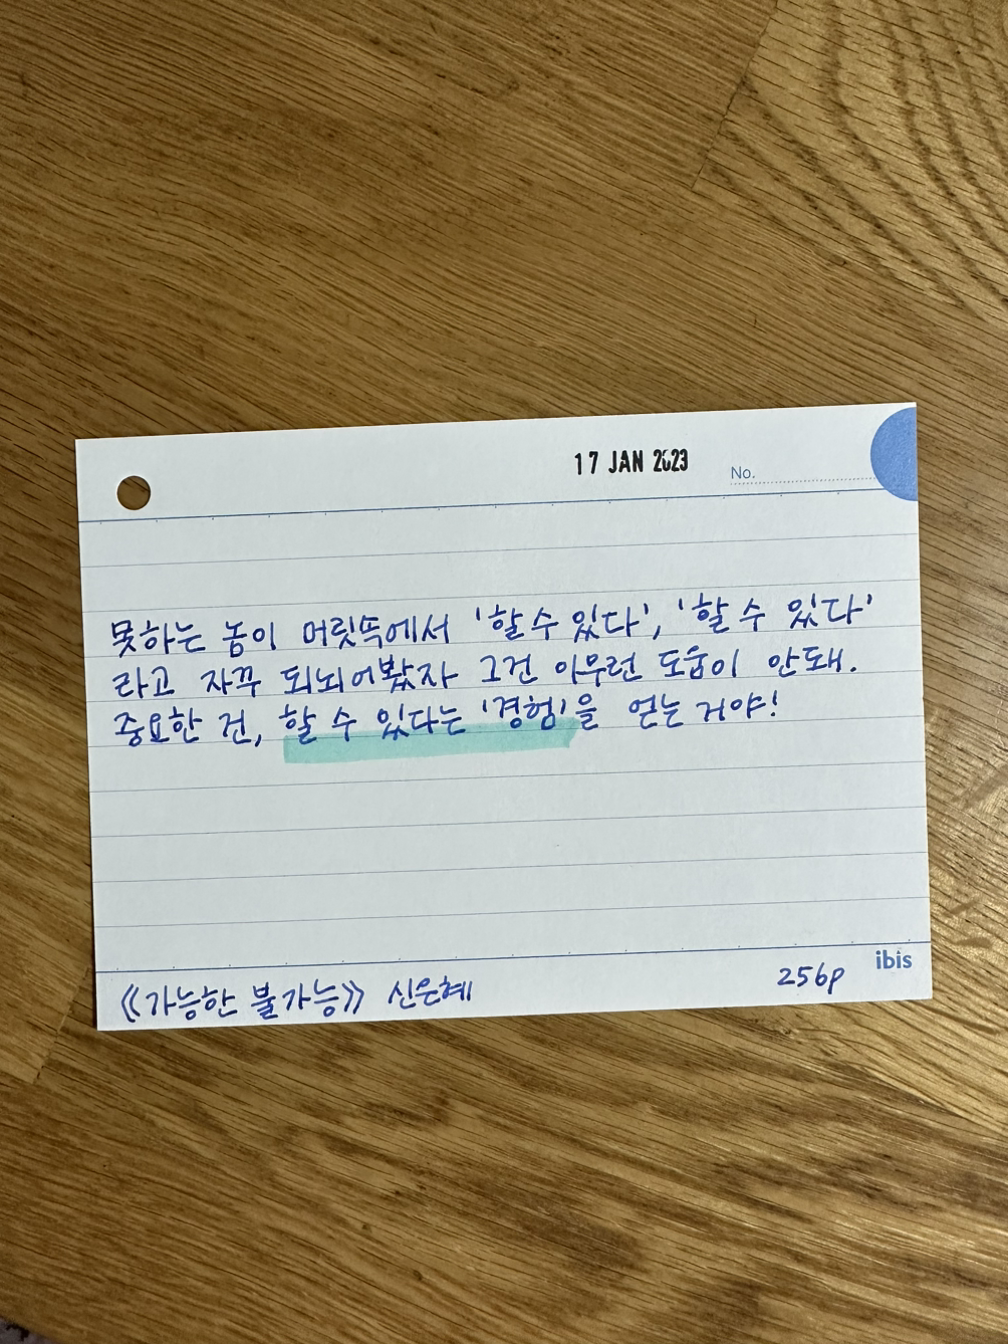 17 JAN 2023
No.
못하는 놈이 머릿뜩에서 '할 수 있다', '할 수 있다'
라고 자꾸 되뇌어봤자 그건 아무런 도움이 안돼.
중요한 건, 할 수 있다는 '경험'을 얻는 거야!
ibis
《가능한 불가능》 신은혜 256p